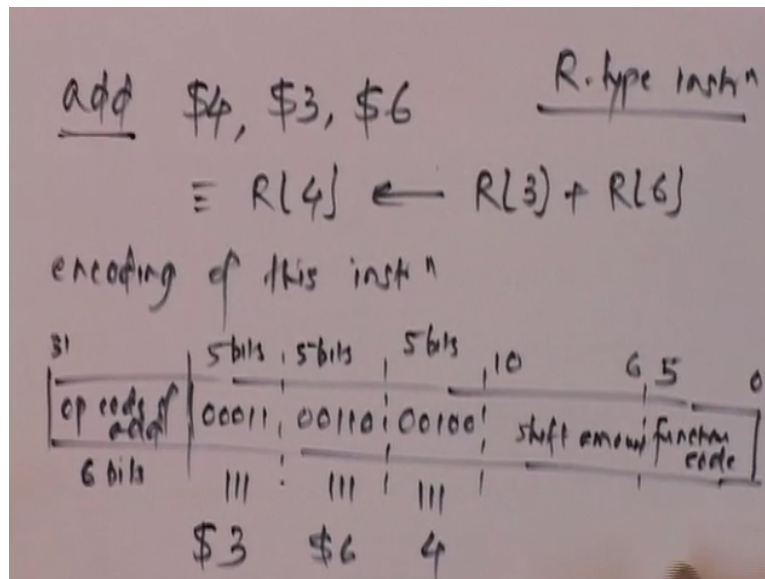 add $4, $3, $6 R-type instⁿ
≡ R[4] ← R[3] + R[6]
encoding of this instⁿ
31 5 bits 5 bits 5 bits 10 6 5 0
op code of add 00011 00110 00100 shift amount function code
6 bits ||| ||| |||
$3 $6 4